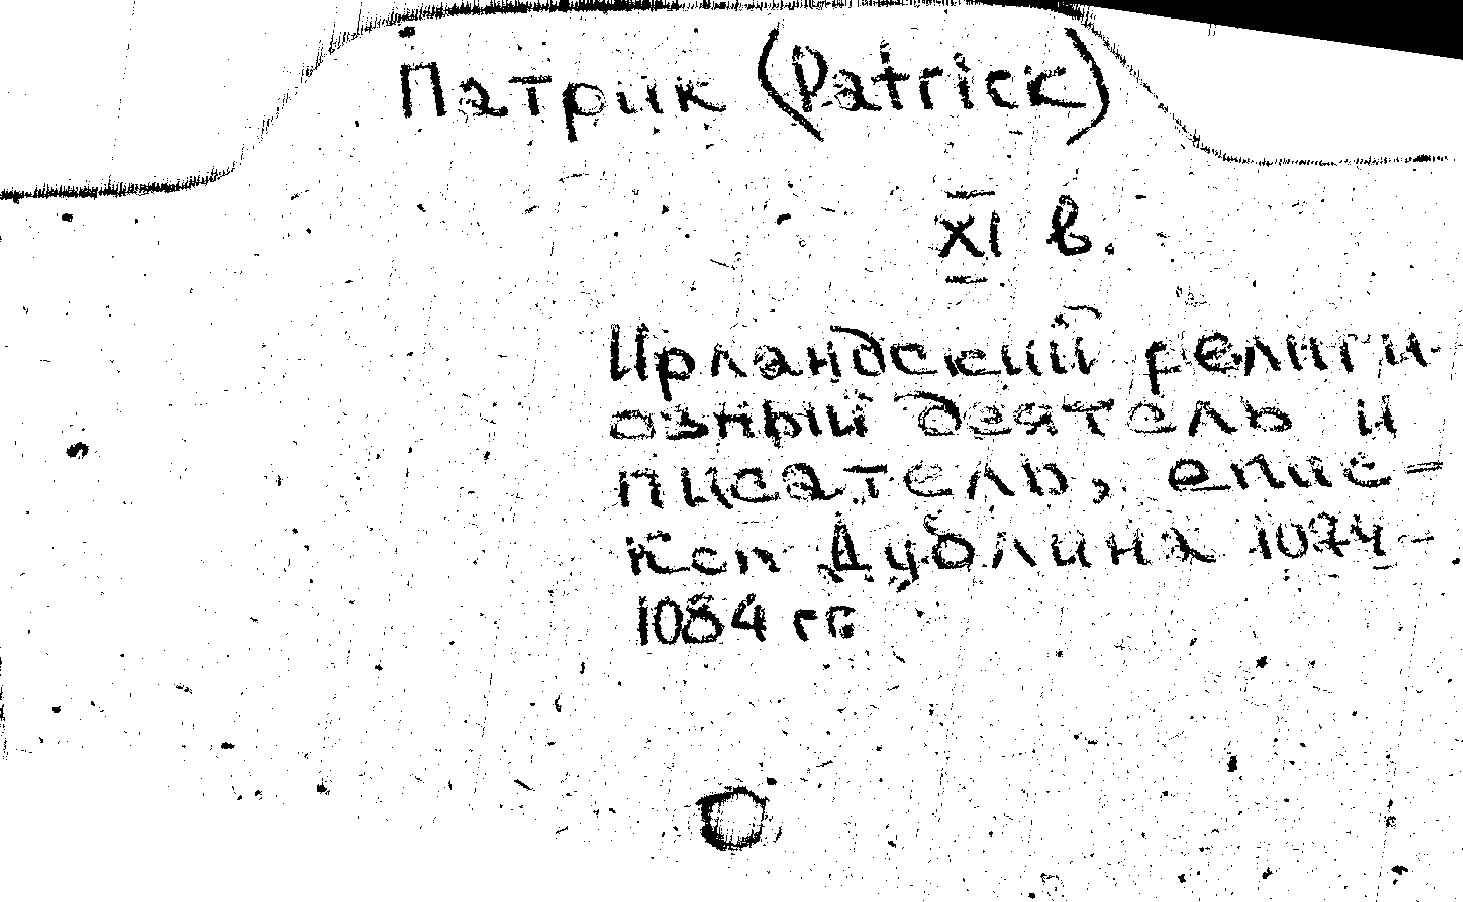 Патрик (Patrick)
XI в.
Ирландский религи-
озный деятель и
писатель, епис-
коп Дублина 1074-
1084 гг.